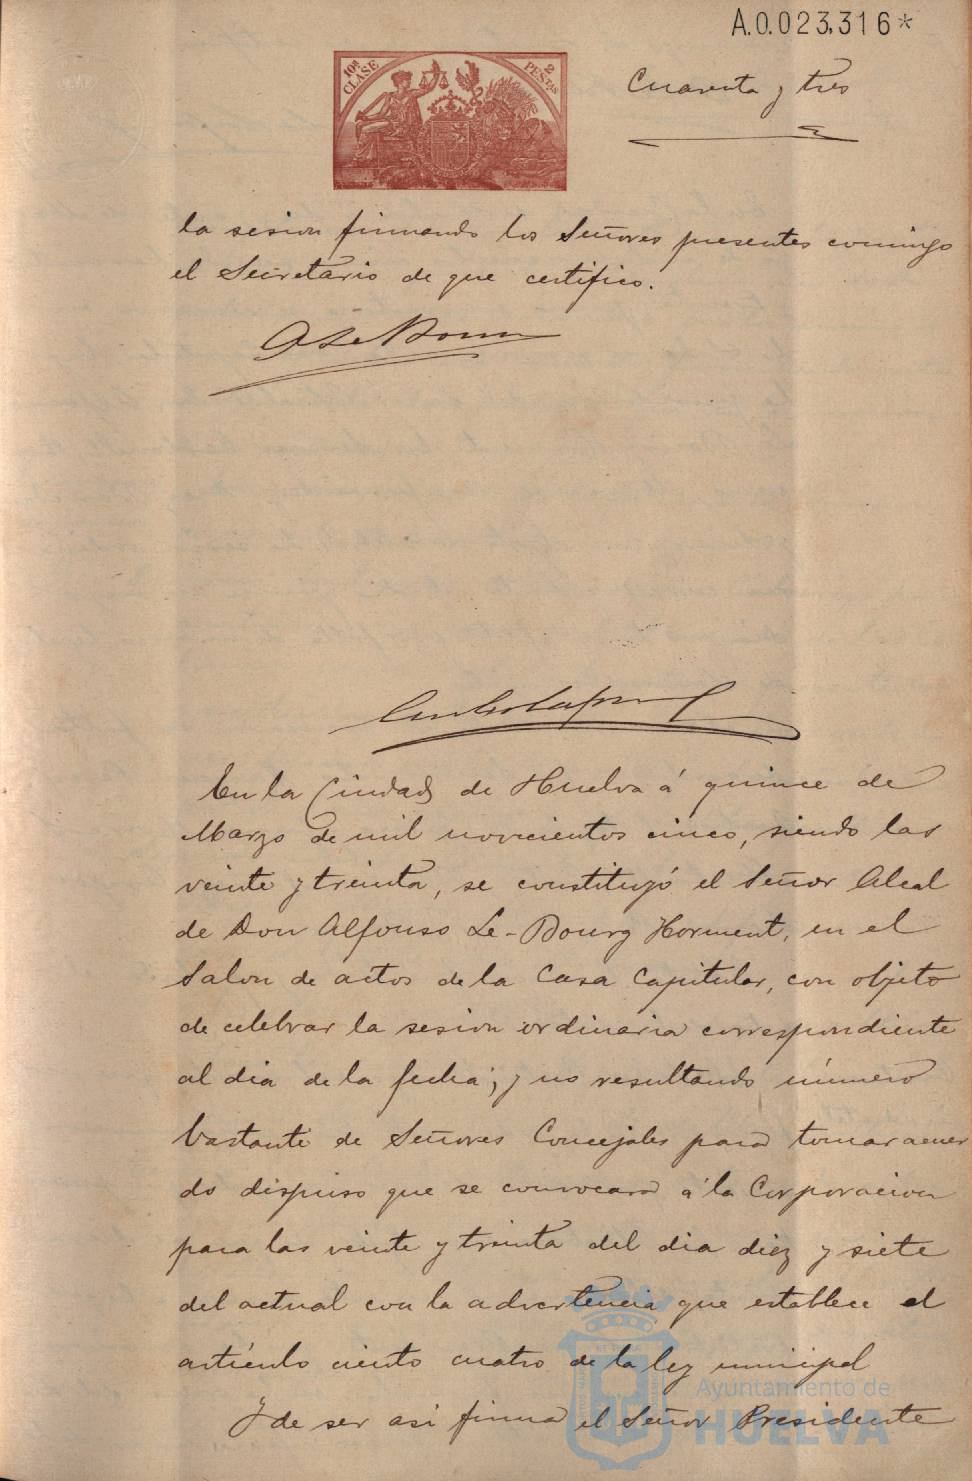 A.0.023,316*
10ª CLASE
2 PESTAS
Cuarenta y tres
la sesion firmando los Señores presentes conmigo
el Secretario de que certifico.
En la Ciudad de Huelva á quince de
Marzo de mil novecientos cinco, siendo las
veinte y treinta, se constituyó el Señor Alcal
de Don Alfonso Le-Bourg Horment, en el
Salon de actos de la Casa Capitular, con objeto
de celebrar la sesion ordinaria correspondiente
al dia de la fecha; y no resultando número
bastante de Señores Concejales para tomar acuer
do dispuso que se convocara á la Corporacion
para las veinte y treinta del dia diez y siete
del actual con la advertencia que establece el
artículo ciento cuatro de la ley municipal
Y de ser asi firma el Señor Presidente
Ayuntamiento de
HUELVA